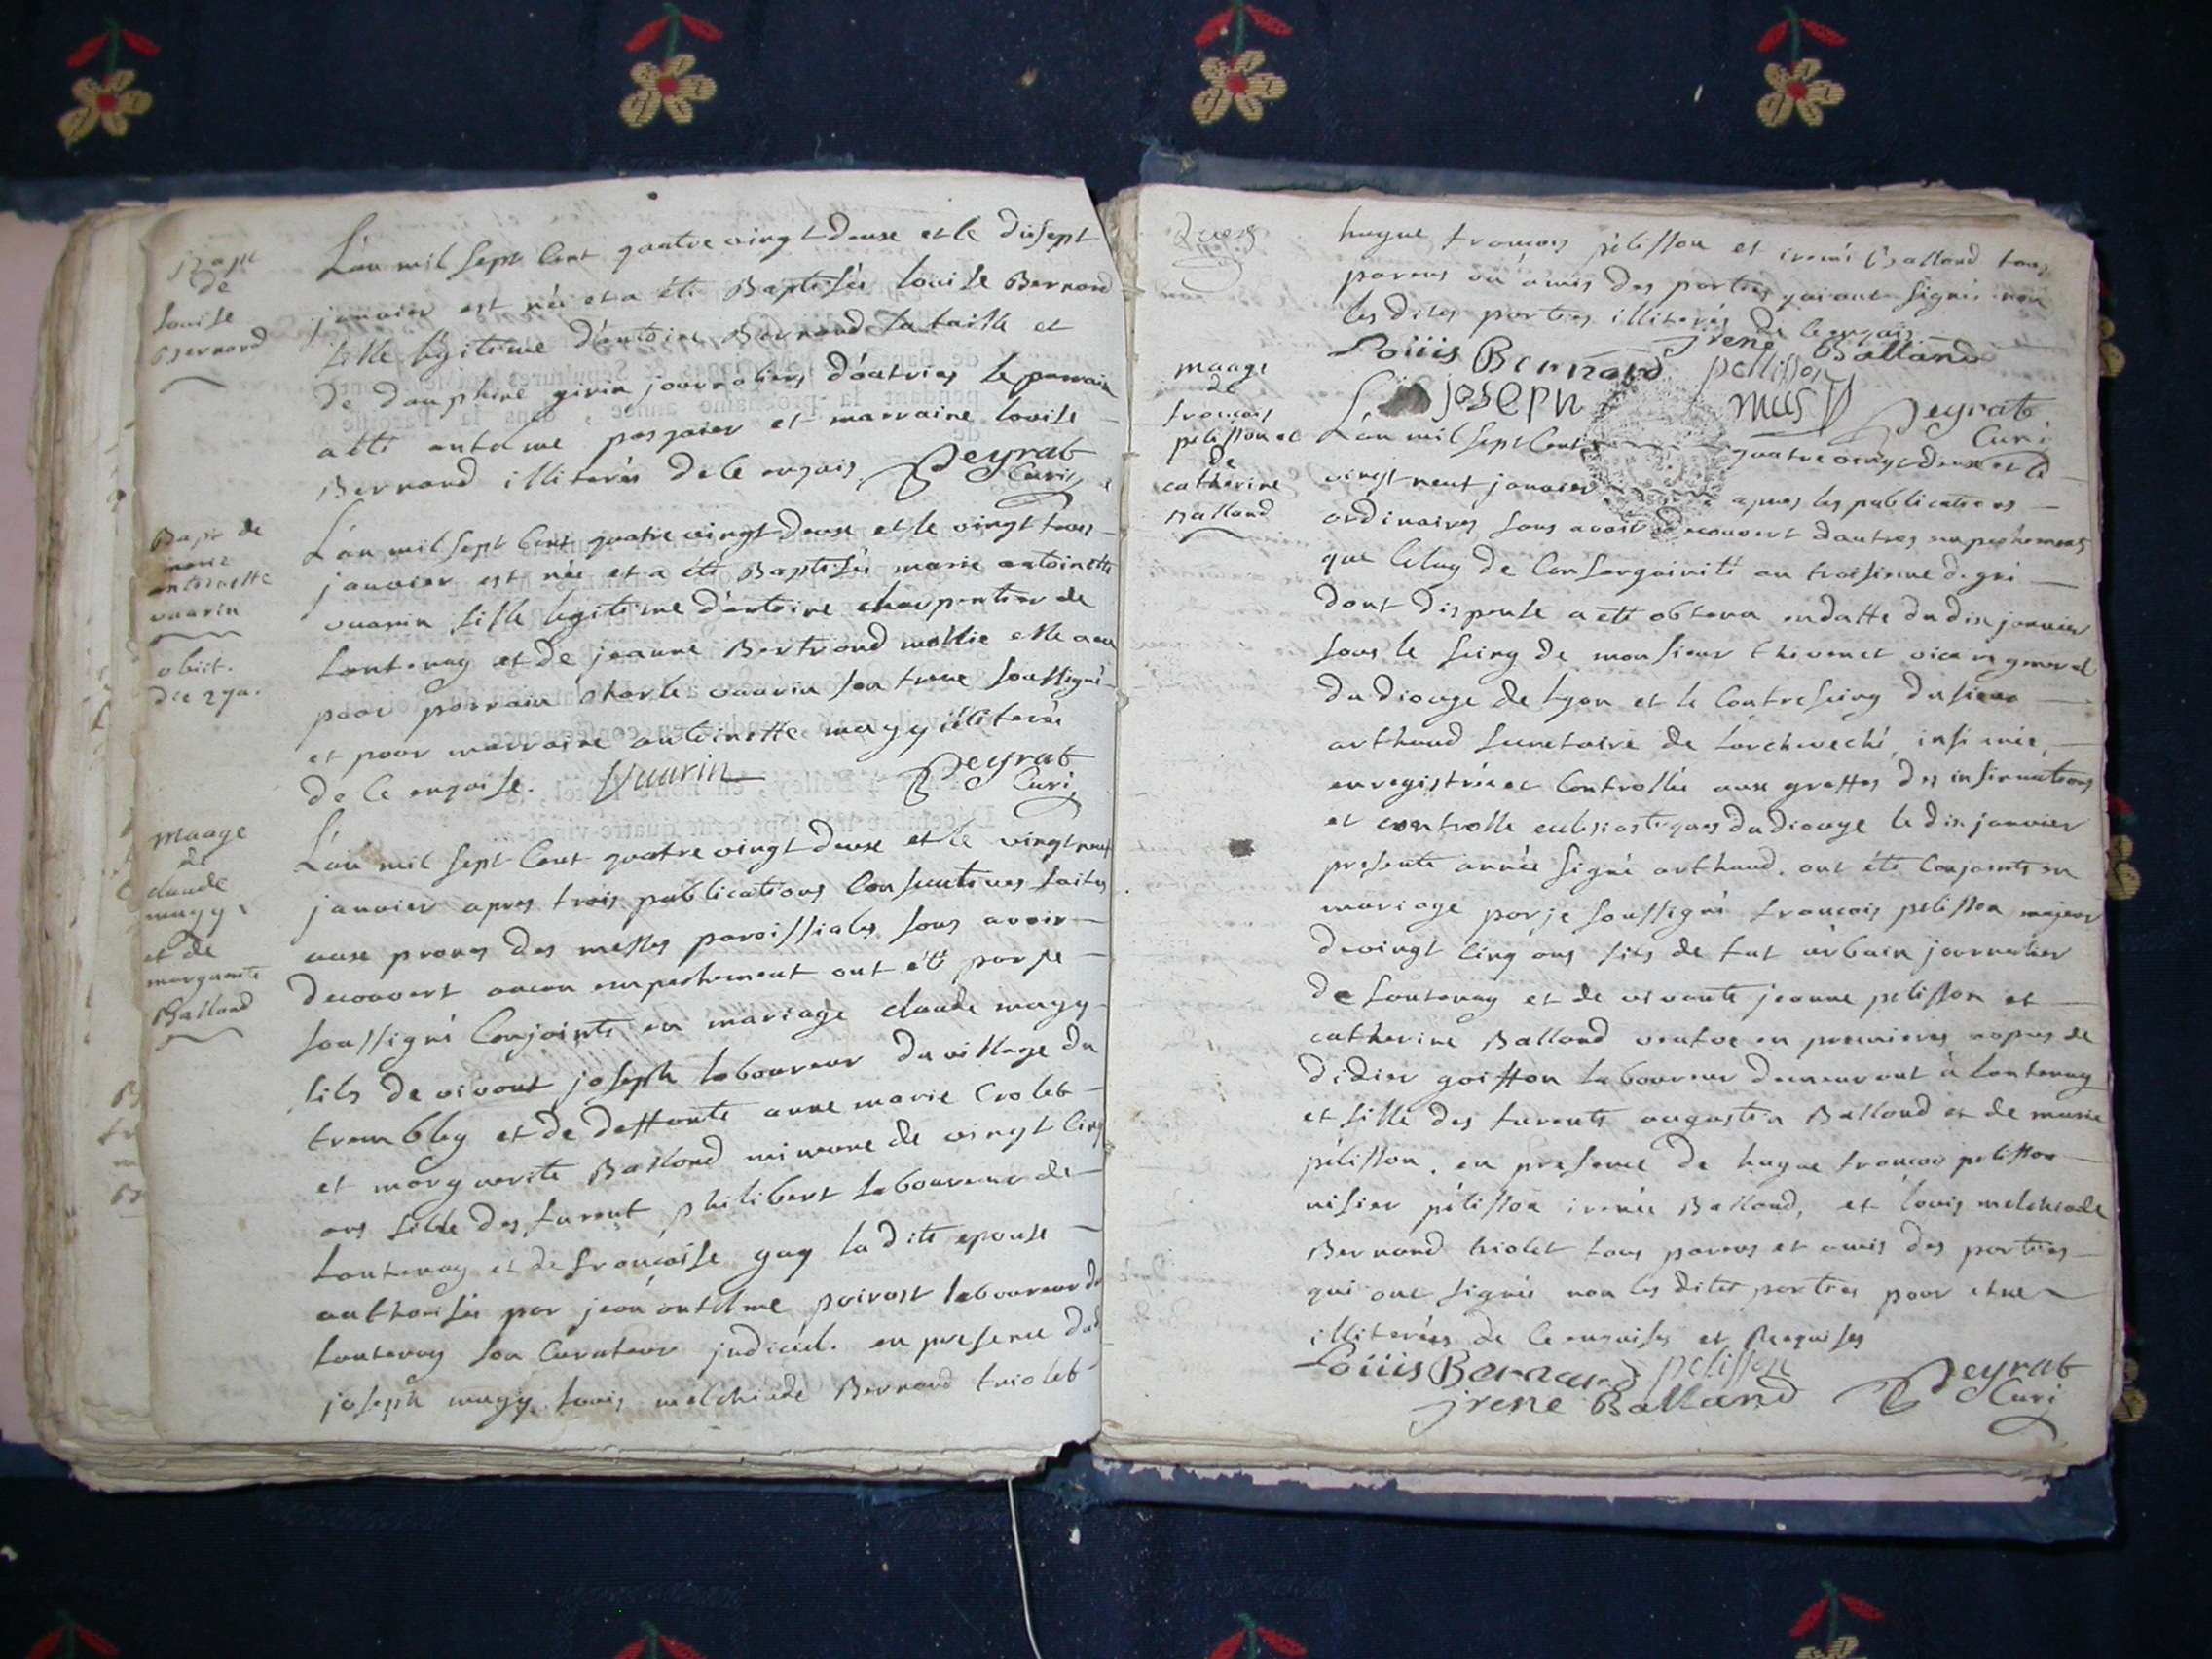 Bapt
de
louise
Bernard
L'an mil sept cent quatre vingt deux et le disept
janvier est née et a été Baptisée louise Bernard
fille légitime d'antoine Bernard la taille et
de dauphine girin journaliers d'outriaz le parrain
a été antelme pasquier et marraine louise
Bernard illiterés de ce enquis. Peyrat
Curé
Bapt de
marie
antoinette
vuarin
obiit.
die 29 ja.
L'an mil sept cent quatre vingt deux et le vingt trois
janvier est née et a été Baptisée marie antoinette
vuarin fille legitime d'antoine charpentier de
lantenay et de jeanne Bertrand mollie elle a eu
pour parrain charle vuarin son frere soussigné
et pour marraine antoinette magy illiterée
de ce enquise. Vuarin Peyrat
Curé
maage
de
claude
magy
et de
marguerite
Balland
L'an mil sept cent quatre vingt deux et le vingt neuf
janvier apres trois publications consecutives faites
aux prones des messes paroissiales sans avoir
decouvert aucun empechement ont été par je
soussigné conjoints en mariage claude magy
fils de vivant joseph laboureur du village du
trembley et de deffunte anne marie Crolet
et marguerite Balland mineure de vingt cinq
ans fille des furent philibert laboureur de
lantenay et de françoise guy la dite epouse
authorisée par jean antelme poirost laboureur de
lantenay son curateur judiciel. en presence dud
joseph magy, louis melchiade Bernard triolet
hugue francois pélisson et irené Balland tous
parens ou amis des parties qui ont signés non
les dites parties illiterés de ce enquis
Loüis Bernard jrene Balland
pelisson
joseph musy Peyrat
Curé
maage
de
francois
pelisson et
de
catherine
Balland
L'an mil sept Cent quatre vingt deux et le
vingt neuf janvier apres les publications
ordinaires sans avoir decouvert dautres empechements
que celuy de Consanguinité au troisieme degré
dont dispense a eté obtenu en datte du dix janvier
sous le seing de monsieur thevenet vicaire general
du dioceze de Lyon et le Contreseing du sieur
arthaud secretaire de l'archeveché, insinuée,
enregistrée et Controllée aux greffes des insinuations
et controlle ecclesiastiques du dioceze le dix janvier
presente année signé arthaud. ont été conjoints en
mariage par je soussigné francois pelisson majeur
de vingt cinq ans fils de fut urbain journalier
de lantenay et de vivante jeanne pelisson et
catherine Balland veutve en premieres nopces de
didier goiffon laboureur demeurant à lantenay
et fille des furents augustin Balland et de marie
pélisson. en presence de hugue francois pelisson
nisier pélisson irenée Balland, et louis melchiade
Bernard triolet tous parens et amis des parties
qui ont signés non les dites parties pour etre
illiterées de ce enquises et Requises
Loüis Bernard pelisson Peyrat
jrene Balland Curé